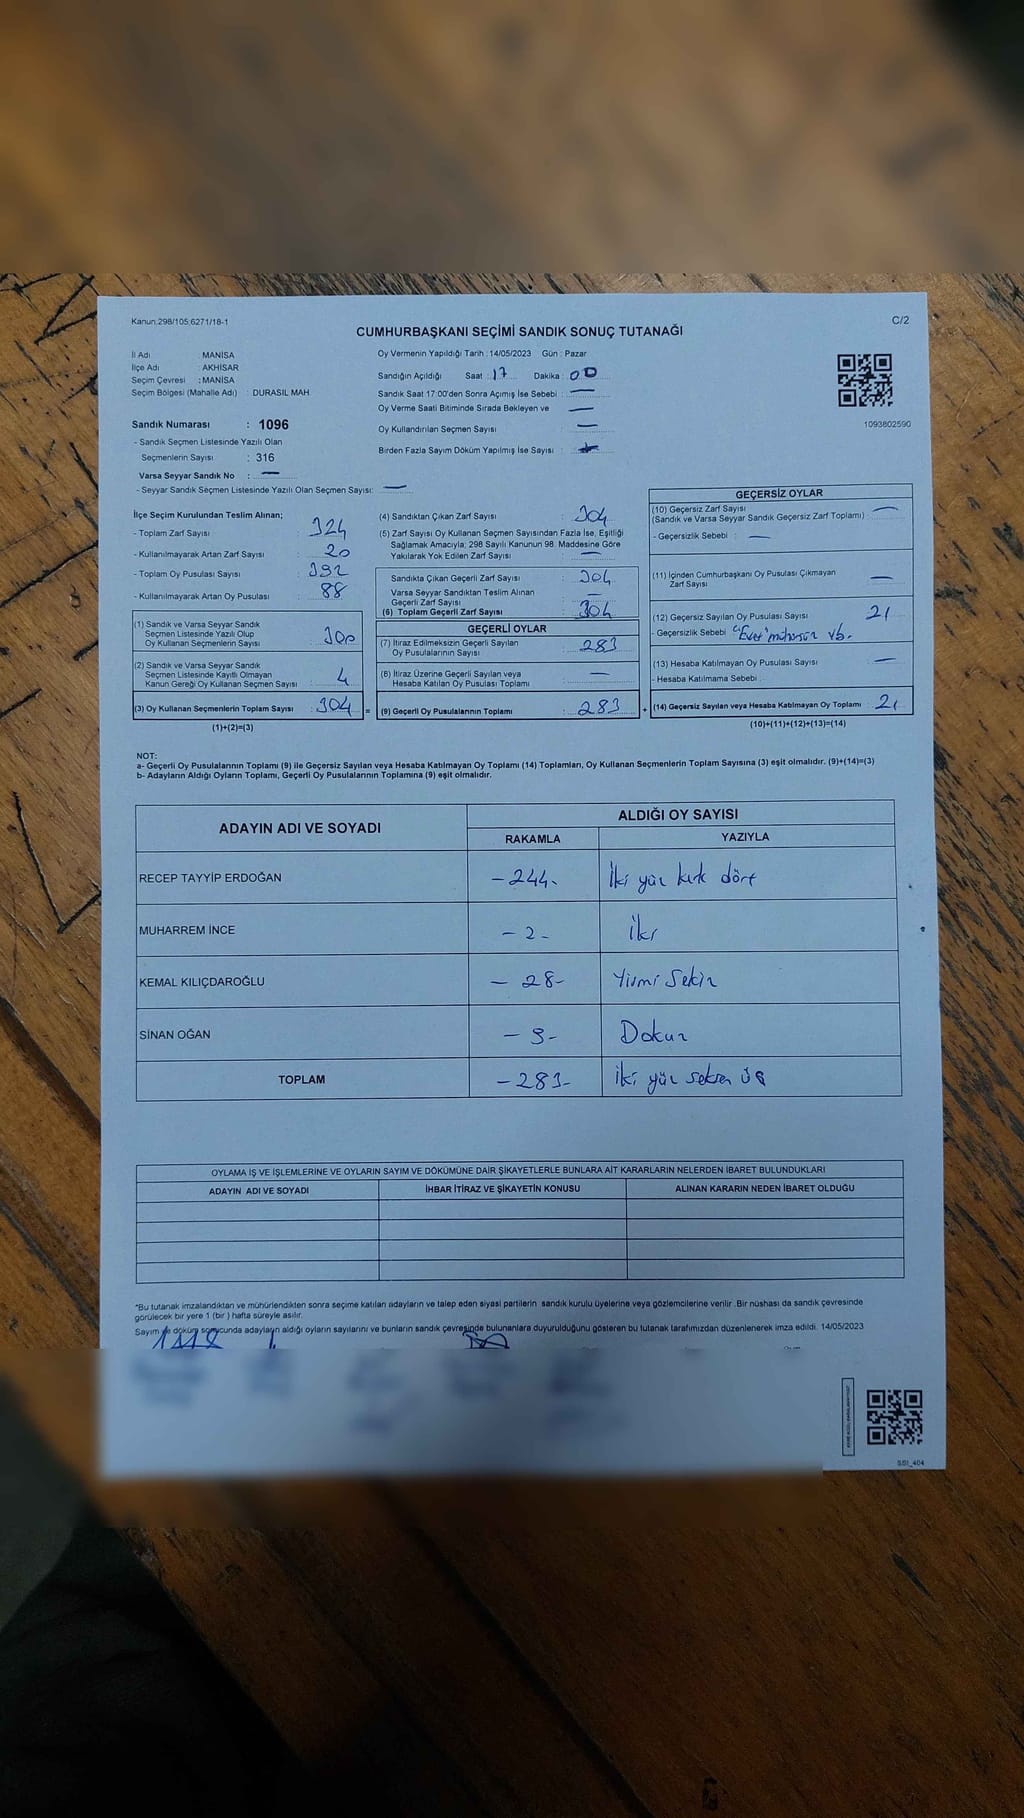 Kanun.298/105;6271/18-1
C/2
CUMHURBAŞKANI SEÇİMİ SANDIK SONUÇ TUTANAĞI
İl Adı : MANİSA
İlçe Adı : AKHİSAR
Seçim Çevresi : MANİSA
Seçim Bölgesi (Mahalle Adı) : DURASIL MAH
Oy Vermenin Yapıldığı Tarih : 14/05/2023 Gün : Pazar
Sandığın Açıldığı Saat : 17 Dakika : 00
Sandık Saat 17:00'den Sonra Açımış İse Sebebi : —
Oy Verme Saati Bitiminde Sırada Bekleyen ve —
Oy Kullandırılan Seçmen Sayısı : —
Birden Fazla Sayım Döküm Yapılmış İse Sayısı :
1093802590
Sandık Numarası : 1096
- Sandık Seçmen Listesinde Yazılı Olan
Seçmenlerin Sayısı : 316
Varsa Seyyar Sandık No : —
- Seyyar Sandık Seçmen Listesinde Yazılı Olan Seçmen Sayısı: —
İlçe Seçim Kurulundan Teslim Alınan;
- Toplam Zarf Sayısı : 324
- Kullanılmayarak Artan Zarf Sayısı : 20
- Toplam Oy Pusulası Sayısı : 392
- Kullanılmayarak Artan Oy Pusulası : 88
(1) Sandık ve Varsa Seyyar Sandık
Seçmen Listesinde Yazılı Olup
Oy Kullanan Seçmenlerin Sayısı : 300
(2) Sandık ve Varsa Seyyar Sandık
Seçmen Listesinde Kayıtlı Olmayan
Kanun Gereği Oy Kullanan Seçmen Sayısı : 4
(3) Oy Kullanan Seçmenlerin Toplam Sayısı : 304
(1)+(2)=(3)
=
(4) Sandıktan Çıkan Zarf Sayısı : 304
(5) Zarf Sayısı Oy Kullanan Seçmen Sayısından Fazla İse, Eşitliği
Sağlamak Amacıyla; 298 Sayılı Kanunun 98. Maddesine Göre
Yakılarak Yok Edilen Zarf Sayısı : —
Sandıkta Çıkan Geçerli Zarf Sayısı : 304
Varsa Seyyar Sandıktan Teslim Alınan
Geçerli Zarf Sayısı : —
(6) Toplam Geçerli Zarf Sayısı : 304
GEÇERLİ OYLAR
(7) İtiraz Edilmeksizin Geçerli Sayılan
Oy Pusulalarının Sayısı : 283
(8) İtiraz Üzerine Geçerli Sayılan veya
Hesaba Katılan Oy Pusulası Toplamı : —
(9) Geçerli Oy Pusulalarının Toplamı : 283
+
GEÇERSİZ OYLAR
(10) Geçersiz Zarf Sayısı : —
(Sandık ve Varsa Seyyar Sandık Geçersiz Zarf Toplamı)
- Geçersizlik Sebebi : —
(11) İçinden Cumhurbaşkanı Oy Pusulası Çıkmayan
Zarf Sayısı : —
(12) Geçersiz Sayılan Oy Pusulası Sayısı : 21
- Geçersizlik Sebebi : "Evet" mühürsüz vb.
(13) Hesaba Katılmayan Oy Pusulası Sayısı : —
- Hesaba Katılmama Sebebi :
(14) Geçersiz Sayılan veya Hesaba Katılmayan Oy Toplamı : 21
(10)+(11)+(12)+(13)=(14)
NOT:
a- Geçerli Oy Pusulalarının Toplamı (9) ile Geçersiz Sayılan veya Hesaba Katılmayan Oy Toplamı (14) Toplamları, Oy Kullanan Seçmenlerin Toplam Sayısına (3) eşit olmalıdır. (9)+(14)=(3)
b- Adayların Aldığı Oyların Toplamı, Geçerli Oy Pusulalarının Toplamına (9) eşit olmalıdır.
ADAYIN ADI VE SOYADI ALDIĞI OY SAYISI
RAKAMLA YAZIYLA
RECEP TAYYİP ERDOĞAN -244- İki yüz kırk dört
MUHARREM İNCE -2- İki
KEMAL KILIÇDAROĞLU -28- Yirmi Sekiz
SİNAN OĞAN -9- Dokuz
TOPLAM -283- İki yüz seksen üç
OYLAMA İŞ VE İŞLEMLERİNE VE OYLARIN SAYIM VE DÖKÜMÜNE DAİR ŞİKAYETLERLE BUNLARA AİT KARARLARIN NELERDEN İBARET BULUNDUKLARI
ADAYIN ADI VE SOYADI İHBAR İTİRAZ VE ŞİKAYETİN KONUSU ALINAN KARARIN NEDEN İBARET OLDUĞU
*Bu tutanak imzalandıktan ve mühürlendikten sonra seçime katılan adayların ve talep eden siyasi partilerin sandık kurulu üyelerine veya gözlemcilerine verilir .Bir nüshası da sandık çevresinde
görülecek bir yere 1 (bir ) hafta süreyle asılır.
Sayım ve döküm sonucunda adayların aldığı oyların sayılarını ve bunların sandık çevresinde bulunanlara duyurulduğunu gösteren bu tutanak tarafımızdan düzenlenerek imza edildi. 14/05/2023